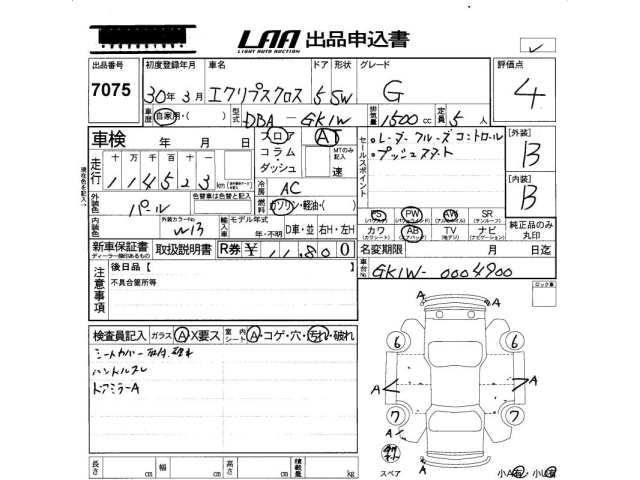 LAA 出品申込書
LIGHT AUTO AUCTION
出品番号 初度登録年月 車名 ドア 形状 グレード 評価点
7075 30年 3月 エクリプスクロス 5 SW G 4
車歴 自家用・( ) 型式 DBA-GK1W 排気量 1500cc 定員 5人
車検 年 月 日 フロア AT MTのみ記入 速
コラム・
ダッシュ
セールスポイント
・レーダークルーズコントロール
・プッシュスタート
[外装]
B
[内装]
B
走行 十 万 千 百 十
114523 km
冷房 AC
外装色 パール 色替車も色替と記入
燃料 ガソリン・軽油・( )
内装色 外装カラーNo W13
輸入車 モデル年式 年・不明 D車・並 右H・左H
PS PW AW SR
(パワステ) (パワーウインド) (アルミホイル) (サンルーフ)
カワ AB TV ナビ
(カワシート) (エアバック) (地デジ) (ナビゲーション)
純正品のみ
丸印
新車保証書 取扱説明書 R券 ¥ 11,800
ディーラー捺印あるもの
名変期限 月 日迄
車台No GK1W-0004900
注意事項
後日品【 】
不具合箇所等
ロック車
検査員記入 ガラス A・X要ス 室内シート A・コゲ・穴・汚れ・破れ
シートカバー
ハンドルスレ
ドアミラーA
A A
6 6
A A
7 7
A X
A
長さ cm 幅 cm 高さ cm 積載量 kg
スペア 小A有 小U有